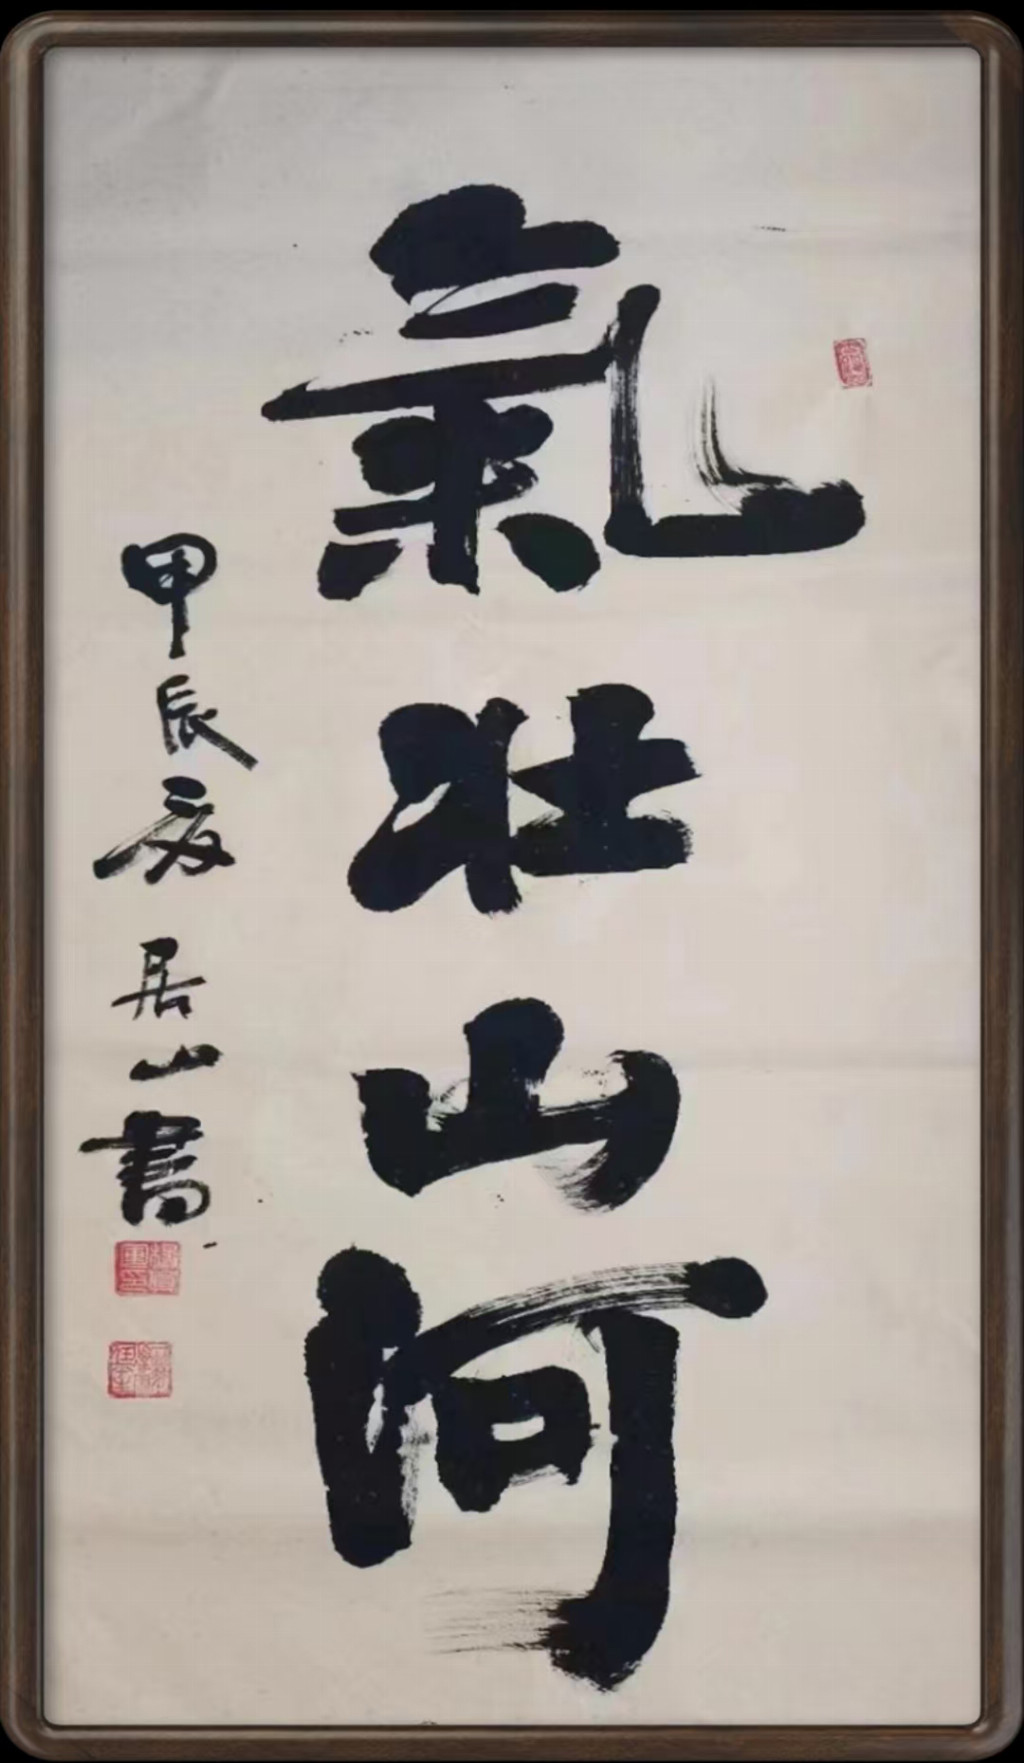 氣壯山河
甲辰夏居山書